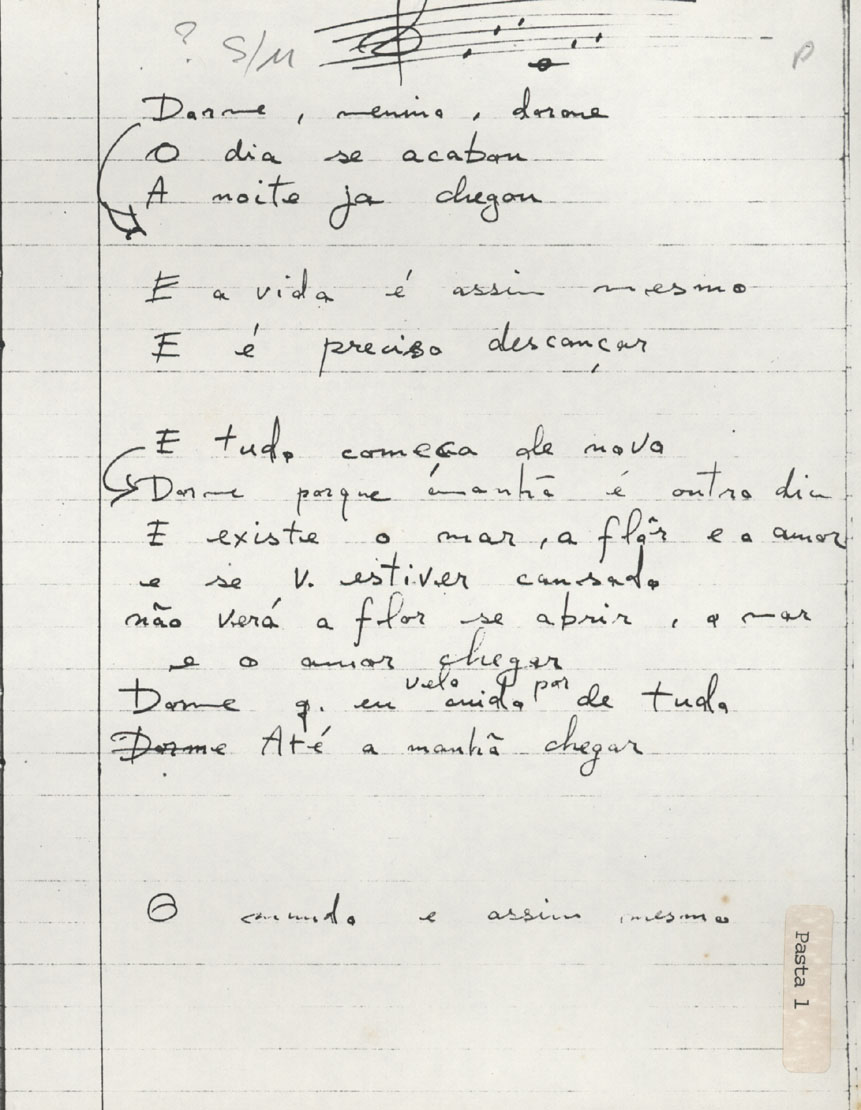 ? S/M
P
Dorme, menino, dorme
O dia se acabou
A noite já chegou
E a vida é assim mesmo
E é preciso descançar
E tudo começa de novo
Dorme porque àmanhã é outro dia
E existe o mar, a flôr e o amor
e se V. estiver cansado
não verá a flor se abrir, o mar
e o amor chegar
velo por
Dorme q. eu cuido de tudo
Dorme Até a manhã chegar
O mundo e assim mesmo
Pasta 1